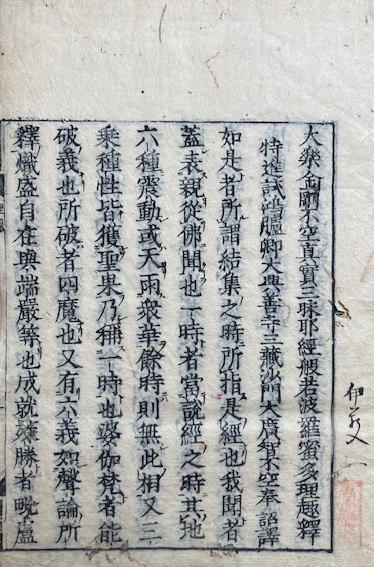 大樂金剛不空真實三昧耶經般若波羅蜜多理趣釋
特進試鴻臚卿大興善寺三藏沙門大廣智不空奉 詔譯
如是者所謂結集之時所指是經也我聞者
蓋表親從佛聞也一時者當說經之時其地
六種震動或天雨衆華餘時則無此相又三
乘種性皆獲聖果乃稱一時也婆伽梵者能
破義也所破者四魔也又有六義如聲論所
釋熾盛自在與端嚴等也成就殊勝者毗盧